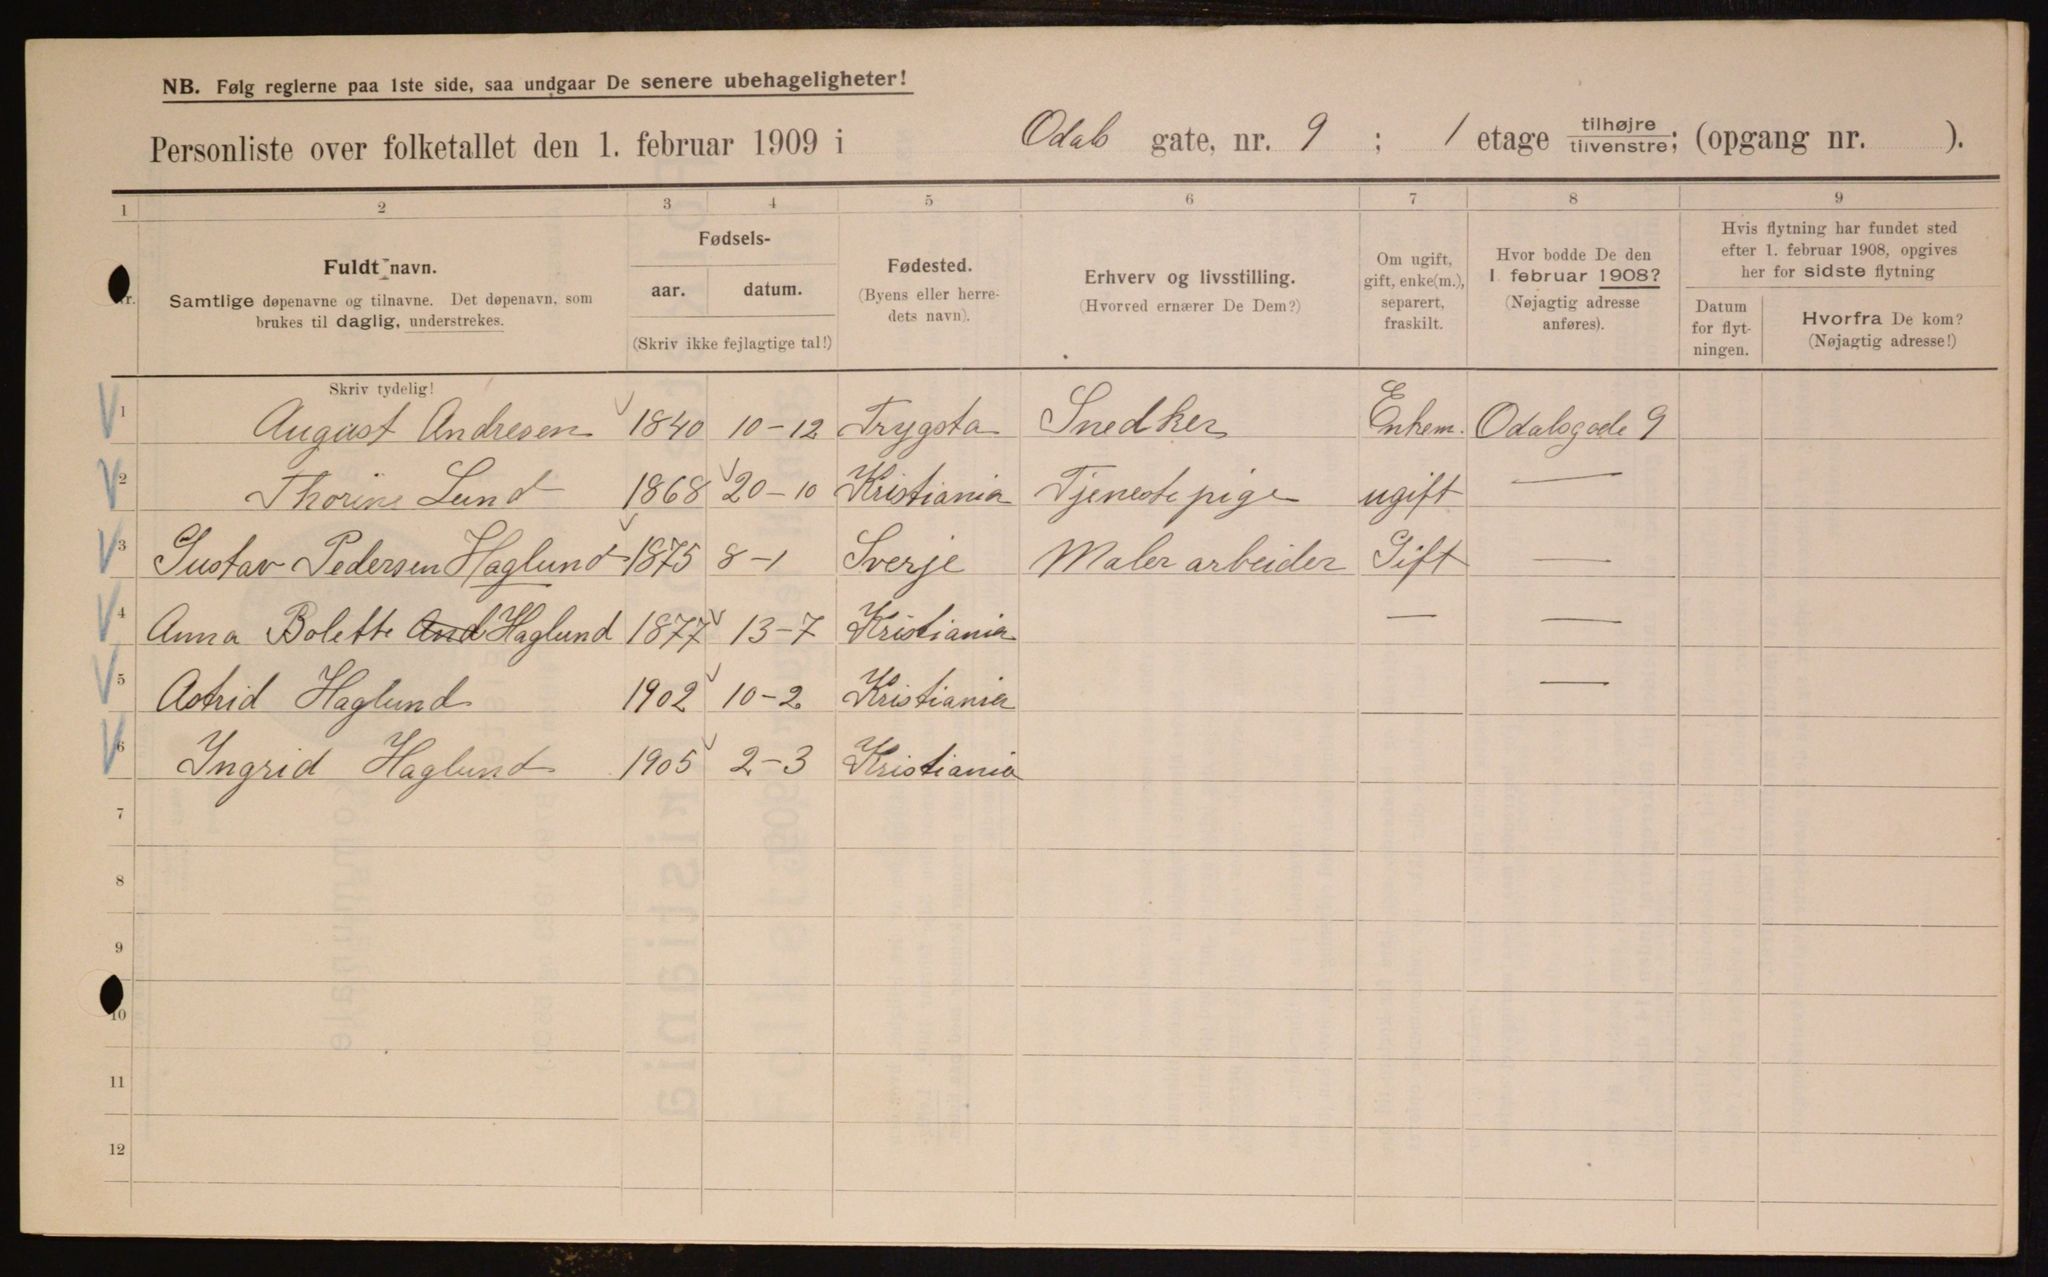 NB. Følg reglerne paa 1ste side, saa undgaar De senere ubehageligheter!
Personliste over folketallet den 1. februar 1909 i Odals gate, nr. 9 ; 1 etage tilhøjre tilvenstre; (opgang nr. ).
1 2 3 4 5 6 7 8 9
Nr.
Fuldt navn.
Samtlige døpenavne og tilnavne. Det døpenavn, som
brukes til daglig, understrekes.
Fødsels-
aar. datum.
(Skriv ikke fejlagtige tal!)
Fødested.
(Byens eller herre-
dets navn).
Erhverv og livsstilling.
(Hvorved ernærer De Dem?)
Om ugift,
gift, enke(m.),
separert,
fraskilt.
Hvor bodde De den
1. februar 1908?
(Nøjagtig adresse
anføres).
Hvis flytning har fundet sted
efter 1. februar 1908, opgives
her for sidste flytning
Datum
for flyt-
ningen.
Hvorfra De kom?
(Nøjagtig adresse!)
Skriv tydelig!
1 August Andresen 1840 10-12 Trygsta Snedker Enkem. Odalsgade 9
2 Thorine Lund 1868 20-10 Kristiania Tjenestepige ugift —
3 Gustav Pedersen Haglund 1875 8-1 Sverje Maler arbeider Gift —
4 Anna Bolette And Haglund 1877 13-7 Kristiania — —
5 Astrid Haglund 1902 10-2 Kristiania —
6 Ingrid Haglund 1905 2-3 Kristiania
7
8
9
10
11
12